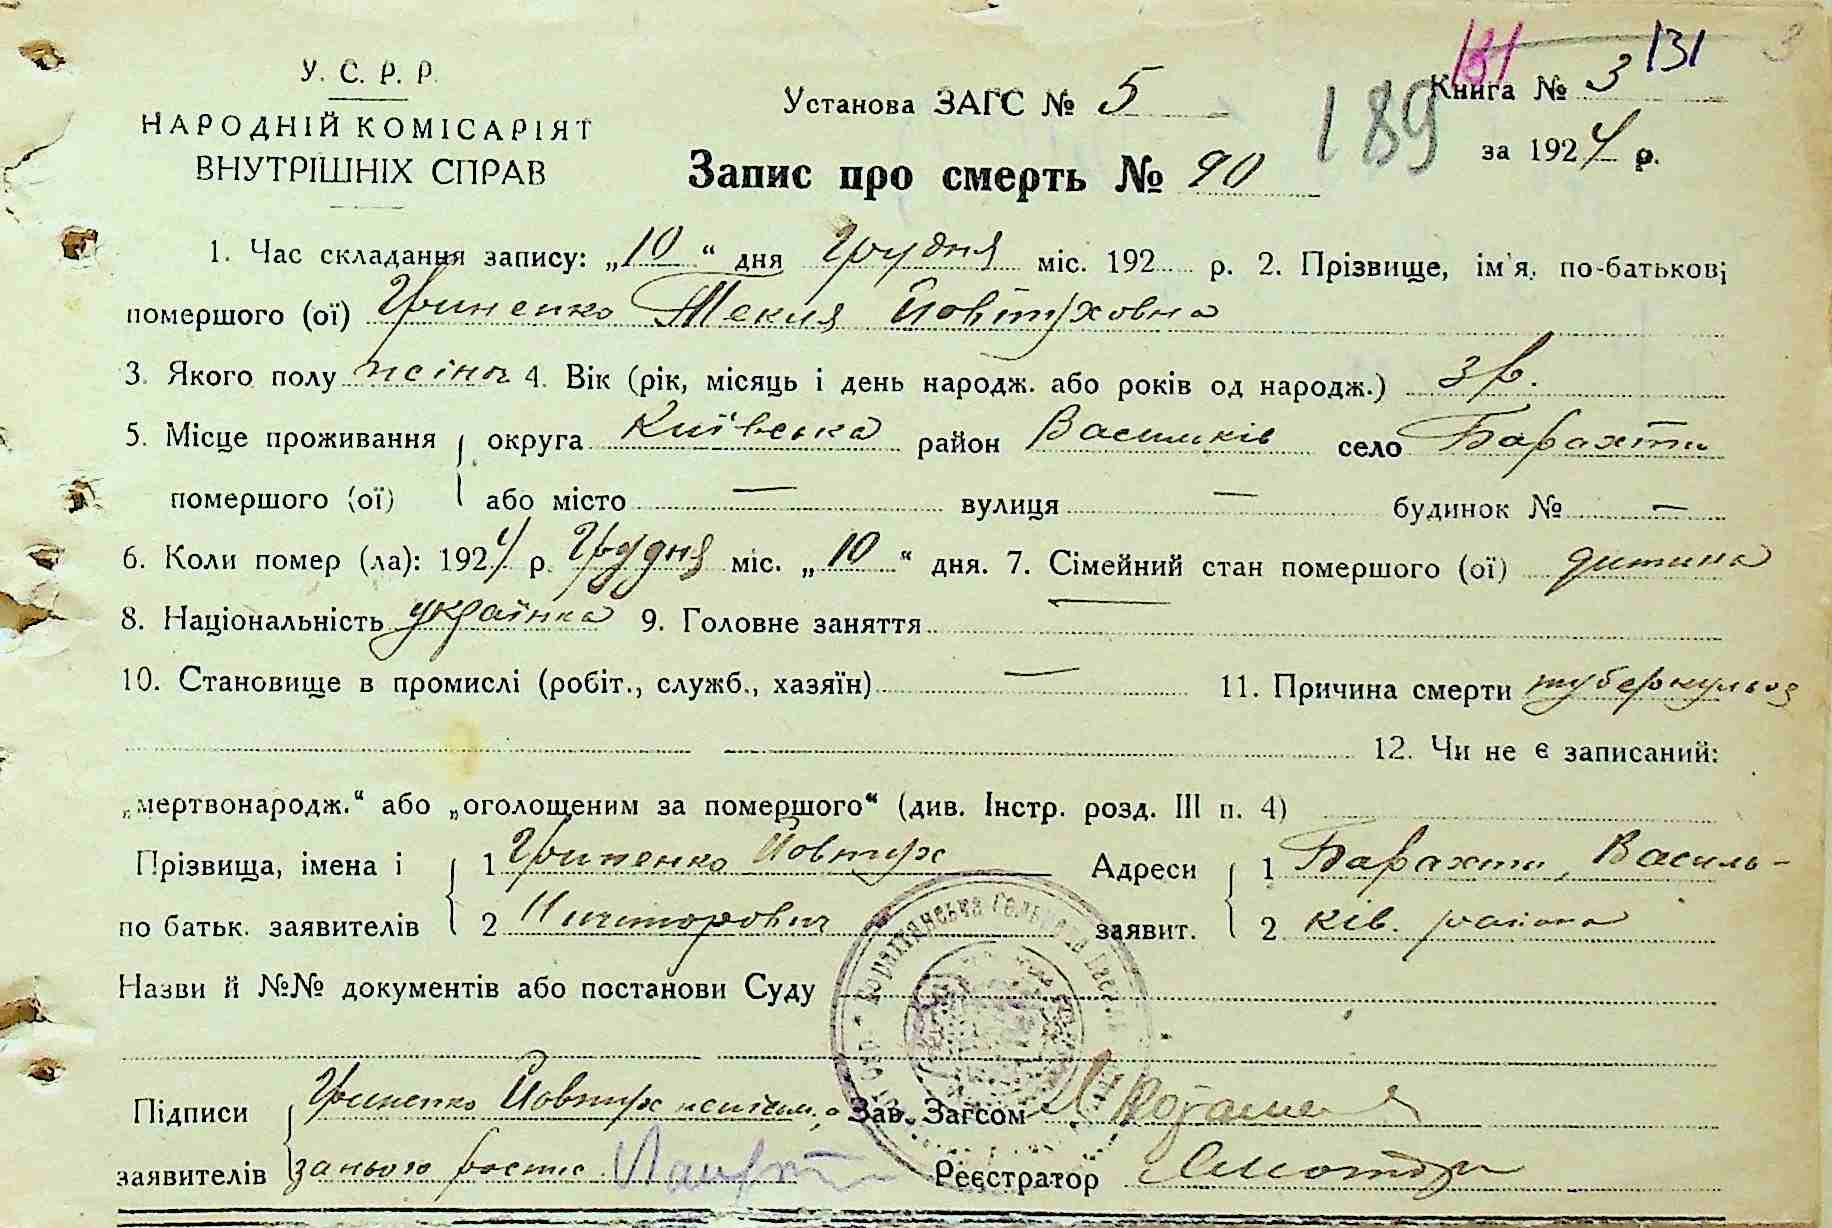 131 131 3
У. С. Р. Р.
НАРОДНІЙ КОМІСАРІЯТ
ВНУТРІШНІХ СПРАВ
Установа ЗАГС № 5
Книга № 3
189
за 1924 р.
Запис про смерть № 90
1. Час складання запису: „10“ дня Грудня міс. 192 р. 2. Прізвище, ім'я, по-батькові
помершого (ої) Гриненко Текля Йовтуховна
3. Якого полу жіноч 4. Вік (рік, місяць і день народж. або років од народж.) 3 р.
5. Місце проживання округа Київська район Васильків село Барахти
помершого (ої) або місто — вулиця — будинок № —
6. Коли помер (ла): 1924 р. Грудня міс. „10“ дня. 7. Сімейний стан помершого (ої) дитина
8. Національність українка 9. Головне заняття —
10. Становище в промислі (робіт., служб., хазяїн) — 11. Причина смерти туберкульоз
12. Чи не є записаний:
„мертвонародж.“ або „оголощеним за помершого“ (див. Інстр. розд. III п. 4)
Прізвища, імена і 1 Гриненко Йовтух Адреси 1 Барахти, Василь-
по батьк. заявителів 2 Ничипорович заявит. 2 ків. района
Назви й №№ документів або постанови Суду
Підписи Гриненко Йовтух Зав. Загсом
заявителів за нього роспис Реєстратор